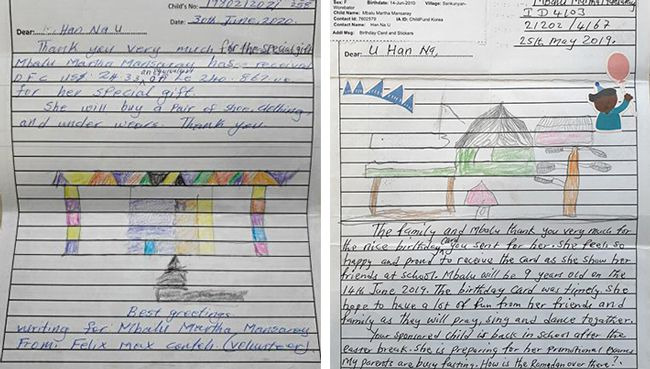 Child's No:
Date: 30th June, 2020.
Dear: Han Na U
Thank you very much for the special gift
Mbalu Martha Mansaray has received
an equivalent
for her special gift.
She will buy a pair of shoe, clothing,
and under wears. Thank you
Best greetings
writing for Mbalu Martha Mansaray
From: Felix max conteh (volunteer)
Sex: F
Village: Sankunyan-
Wonibator
Child Name: Mbalu Martha Mansaray
Birthdate: 14-Jun-2010
Contact Id: 7602579
IA ID: ChildFund Korea
Contact: Han Na U
Addl Msg: Birthday Card and Stickers
Mbalu Martha Mansaray
ID 4103
21202/4167
25th May 2019.
Dear: U Han Na,
The family and Mbalu thank you very much for
the nice birthday card you sent for her. She feel so
happy and proud to receive the card as she show her
friends at school. Mbalu will be 9 years old on the
14th June 2019. The birthday card was timely. She
hope to have a lot of fun from her friends and
family as they will pray, sing and dance together.
Your sponsored child is back in school after the
easter break. She is preparing for her promotional exams
My parents are busy fasting. How is the Ramadan over there?